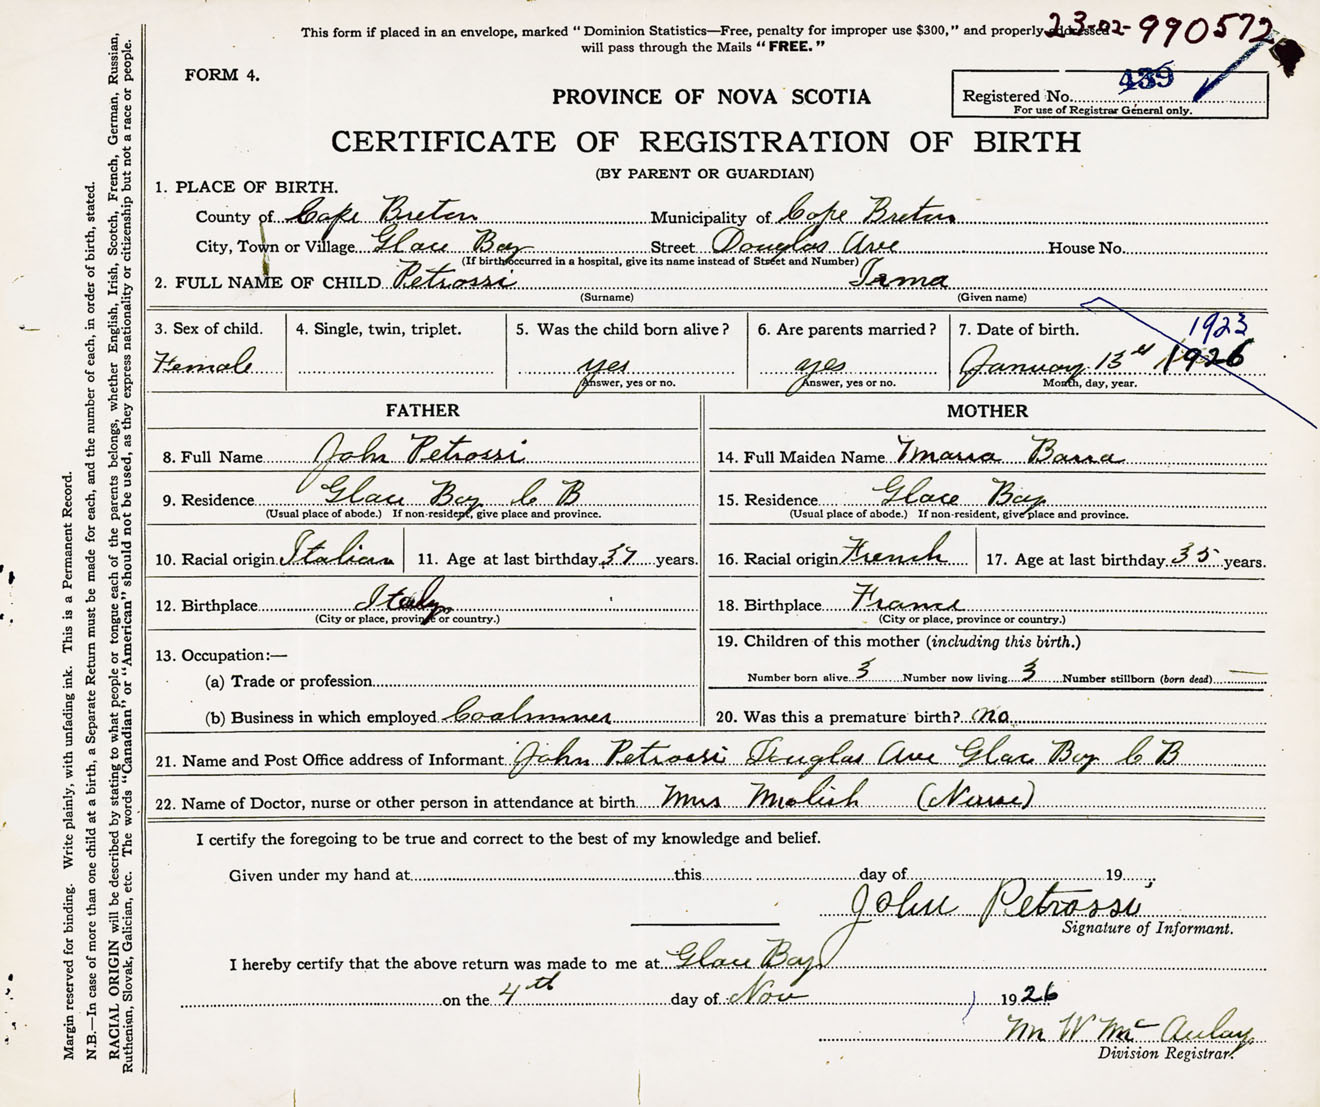 This form if placed in an envelope, marked "Dominion Statistics—Free, penalty for improper use $300," and properly addressed
23-02-990572
will pass through the Mails "FREE."
FORM 4.
439
Registered No.
For use of Registrar General only.
PROVINCE OF NOVA SCOTIA
CERTIFICATE OF REGISTRATION OF BIRTH
(BY PARENT OR GUARDIAN)
1. PLACE OF BIRTH.
County of Cape Breton Municipality of Cape Breton
City, Town or Village Glace Bay Street Douglas Ave House No.
(If birth occurred in a hospital, give its name instead of Street and Number)
2. FULL NAME OF CHILD Petrossi Irma
(Surname) (Given name)
3. Sex of child. 4. Single, twin, triplet. 5. Was the child born alive? 6. Are parents married? 7. Date of birth. 1923
Female yes yes January 13 1926
Answer, yes or no. Answer, yes or no. Month, day, year.
FATHER MOTHER
8. Full Name John Petrossi 14. Full Maiden Name Maria Barra
9. Residence Glace Bay C B 15. Residence Glace Bay
(Usual place of abode.) If non-resident, give place and province. (Usual place of abode.) If non-resident, give place and province.
10. Racial origin Italian 11. Age at last birthday 37 years. 16. Racial origin French 17. Age at last birthday 35 years.
12. Birthplace Italy 18. Birthplace France
(City or place, province or country.) (City or place, province or country.)
13. Occupation:— 19. Children of this mother (including this birth.)
(a) Trade or profession Number born alive 3 Number now living 3 Number stillborn (born dead) —
(b) Business in which employed Coalminer 20. Was this a premature birth? no
21. Name and Post Office address of Informant John Petrossi Douglas Ave Glace Bay C B
22. Name of Doctor, nurse or other person in attendance at birth Mrs Melish (Nurse)
I certify the foregoing to be true and correct to the best of my knowledge and belief.
Given under my hand at this day of 19
John Petrossi
Signature of Informant.
I hereby certify that the above return was made to me at Glace Bay
on the 4th day of Nov 1926
M W McAulay
Division Registrar.
Margin reserved for binding. Write plainly, with unfading ink. This is a Permanent Record.
N.B.—In case of more than one child at a birth, a Separate Return must be made for each, and the number of each, in order of birth, stated.
RACIAL ORIGIN will be described by stating to what people or tongue each of the parents belongs, whether English, Irish, Scotch, French, German, Russian,
Ruthenian, Slovak, Galician, etc. The words "Canadian" or "American" should not be used, as they express nationality or citizenship but not a race or people.